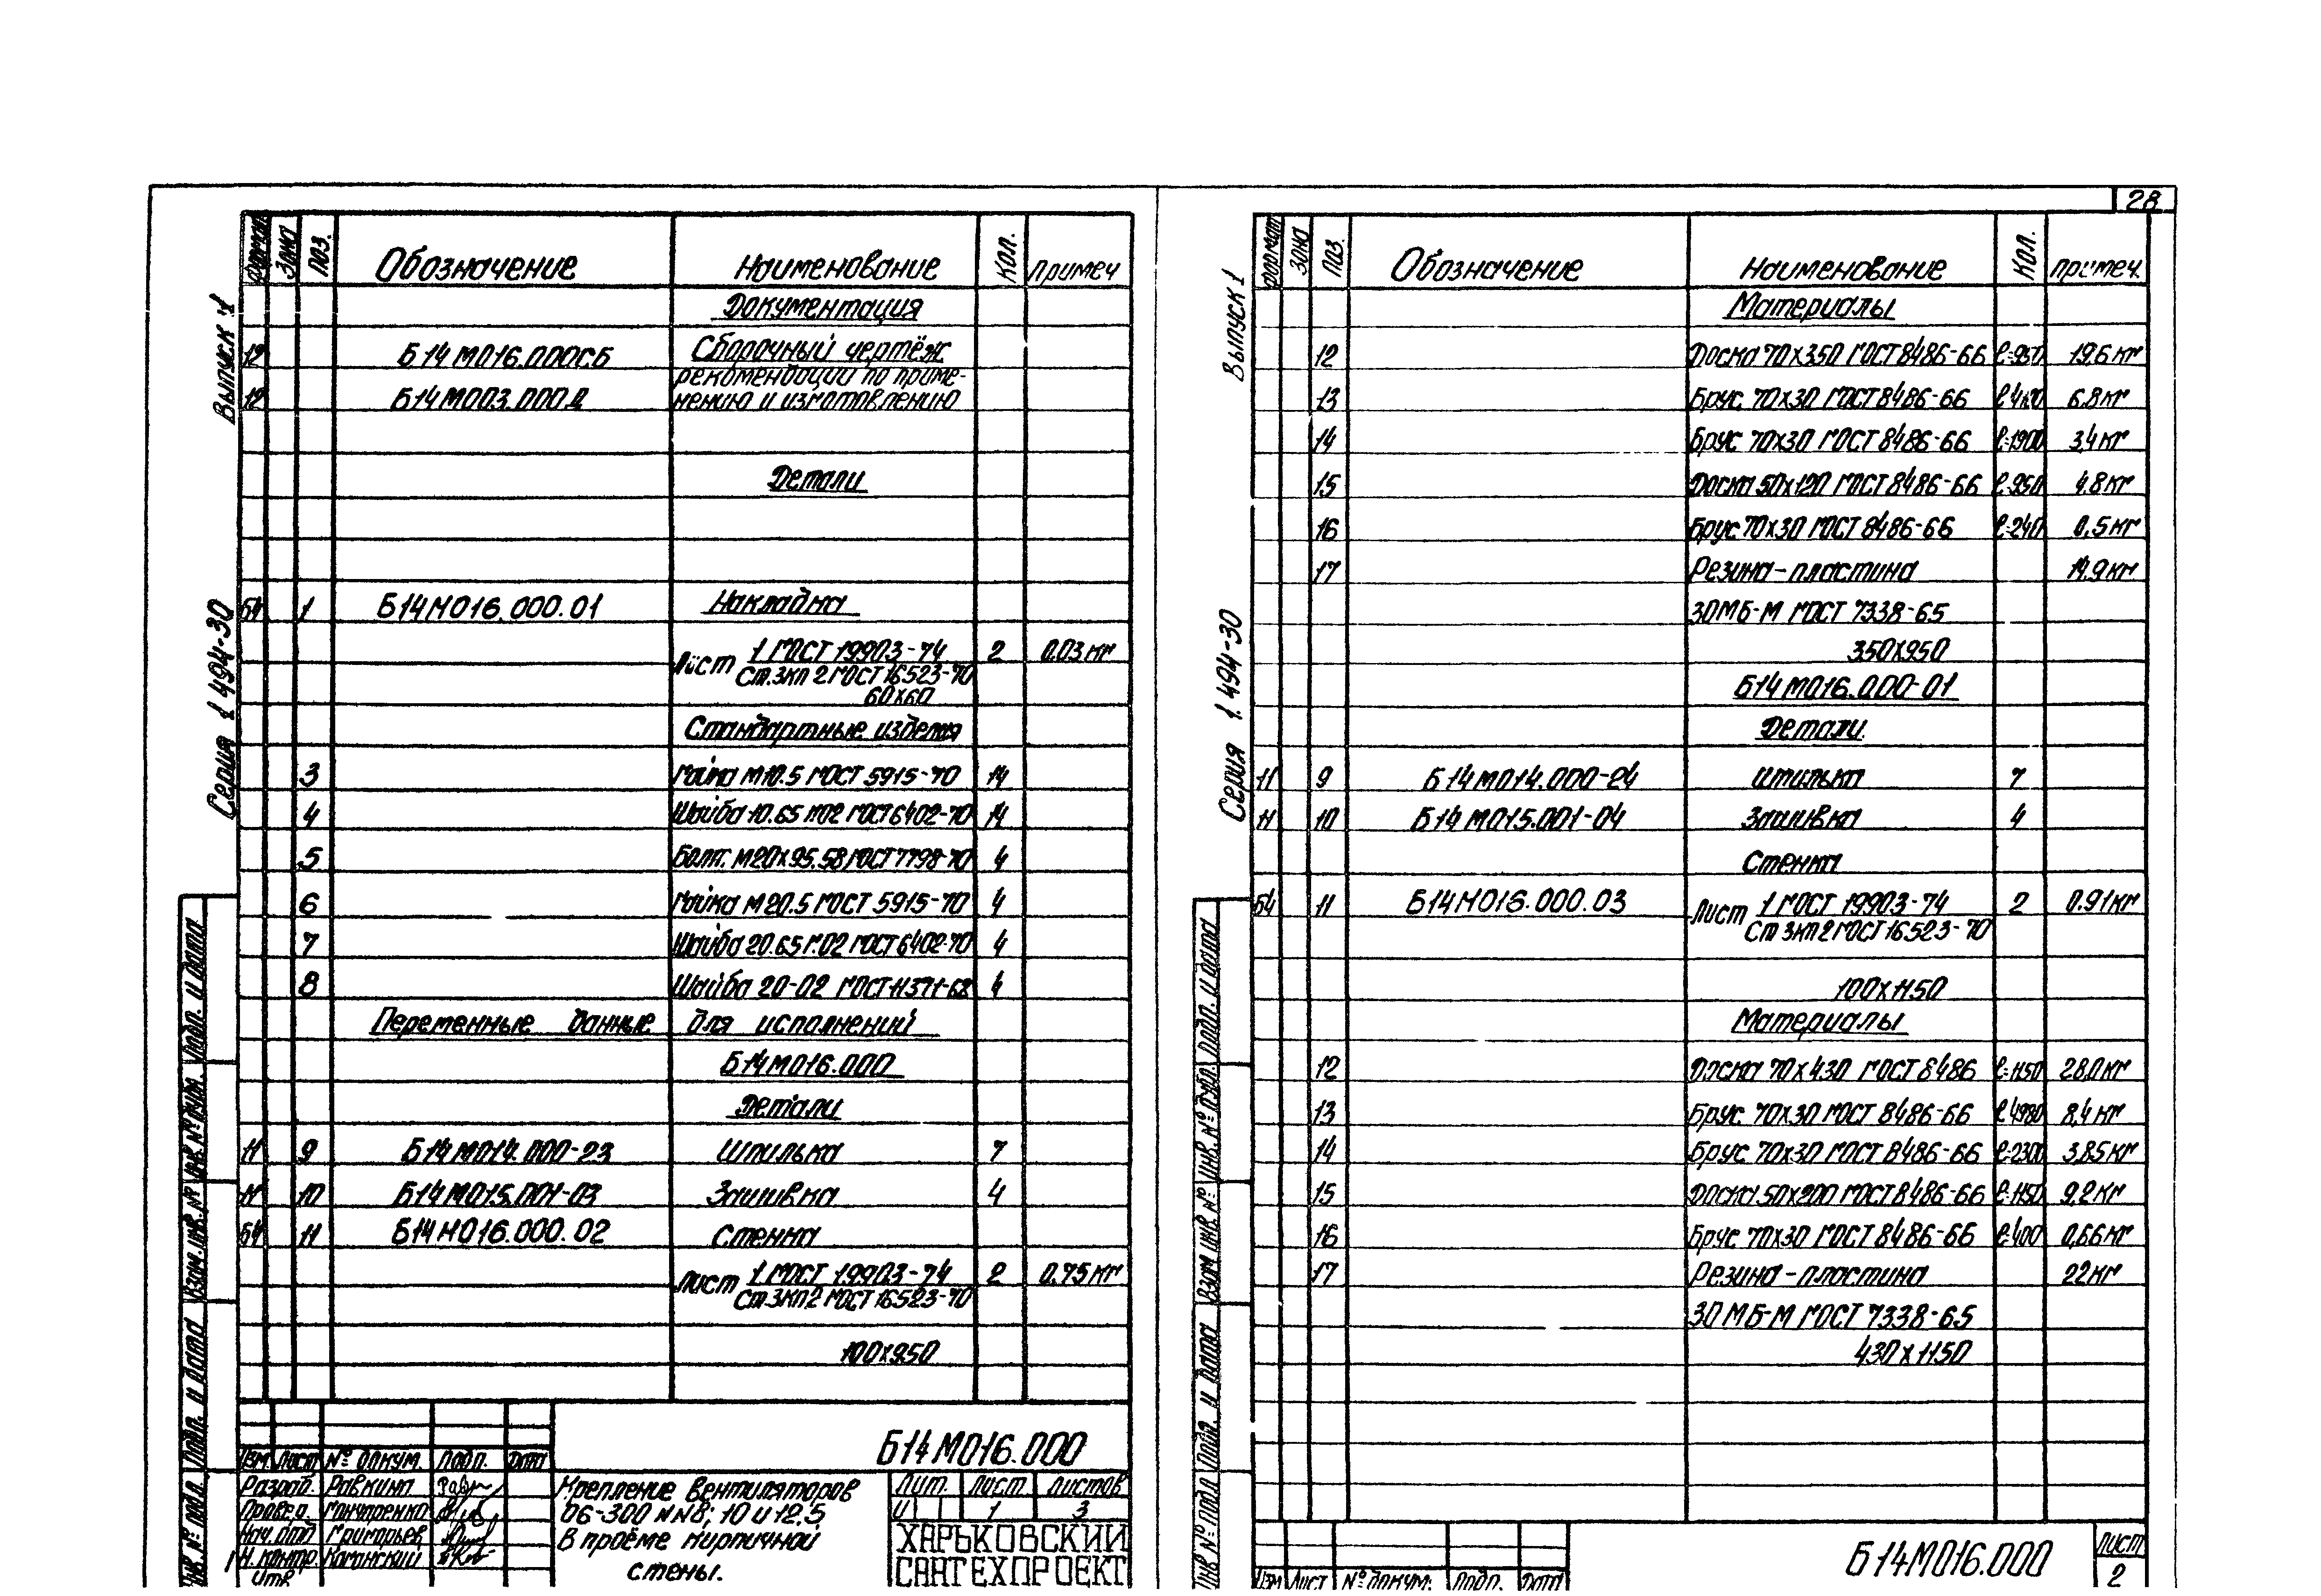 28
Выпуск 1
Серия 1.494-30
Формат Зона Поз. Обозначение Наименование Кол. Примеч
Документация
12 Б14М016.000СБ Сборочный чертёж
рекомендации по приме-
12 Б14М003.000Д нению и изготовлению
Детали
БЧ 1 Б14М016.000.01 Накладка
Лист 1 ГОСТ 19903-74 2 0.03 кг
Ст.3кп 2 ГОСТ 16523-70
60х60
Стандартные изделия
3 Гайка М10.5 ГОСТ 5915-70 14
4 Шайба 10.65 Г02 ГОСТ 6402-70 14
5 Болт М20х95.58 ГОСТ 7798-70 4
6 Гайка М20.5 ГОСТ 5915-70 4
7 Шайба 20.65Г.02 ГОСТ 6402-70 4
8 Шайба 20-02 ГОСТ 11371-68 4
Переменные данные для исполнений
Б14М016.000
Детали
11 9 Б14М014.000-23 Шпилька 7
11 10 Б14М015.001-03 Зашивка 4
БЧ 11 Б14М016.000.02 Стенка
Лист 1 ГОСТ 19903-74 2 0.75 кг
Ст.3кп2 ГОСТ 16523-70
100х950
Б14М016.000
Изм Лист № докум. Подп. Дата
Разраб. Равкина
Провер. Гончаренко
Нач.отд Григорьев
Н.контр. Каганский
Утв
Крепление вентиляторов
06-300 №№8; 10 и 12.5
в проёме кирпичной
стены.
Лит. Лист Листов
И 1 3
ХАРЬКОВСКИЙ
САНТЕХПРОЕКТ
Инв. № подл. Подп. и дата Взам.инв. № Инв. № дубл. Подп. и дата
Выпуск 1
Серия 1.494-30
Формат Зона Поз. Обозначение Наименование Кол. Примеч.
Материалы
12 Доска 70х350 ГОСТ 8486-66 ℓ=950 19,6 кг
13 Брус 70х30 ГОСТ 8486-66 6,8 кг
14 Брус 70х30 ГОСТ 8486-66 ℓ=1900 3,4 кг
15 Доска 50х120 ГОСТ 8486-66 ℓ=950 4.8 кг
16 Брус 70х30 ГОСТ 8486-66 ℓ=240 0,5 кг
17 Резина-пластина 14.9 кг
30МБ-М ГОСТ 7338-65
350х950
Б14М016.000-01
Детали
11 9 Б14М014.000-24 Шпилька 7
11 10 Б14М015.001-04 Зашивка 4
Стенка
БЧ 11 Б14М016.000.03 Лист 1 ГОСТ 19903-74 2 0.91кг
Ст 3кп2 ГОСТ 16523-70
100х1150
Материалы
12 Доска 70х430 ГОСТ 8486 ℓ=1150 28,0 кг
13 Брус 70х30 ГОСТ 8486-66 ℓ=4980 8,4 кг
14 Брус 70х30 ГОСТ 8486-66 ℓ=2300 3,85 кг
15 Доска 50х200 ГОСТ 8486-66 ℓ=1150 9,2 кг
16 Брус 70х30 ГОСТ 8486-66 ℓ=400 0,66 кг
17 Резина-пластина 22 кг
30 МБ-М ГОСТ 7338-65
430х1150
Б14М016.000
Лист
2
Изм Лист № докум. Подп. Дата
Инв № подл Подп. и дата Взам инв. № Инв. № дубл. Подп. и дата